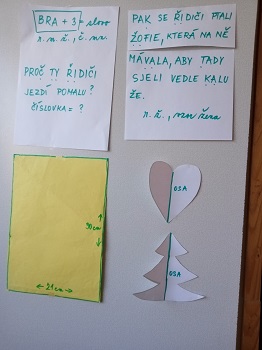 BRA + 3 = slovo
r. m. ž., č. mn.
PROČ TY ŘIDIČI
JEZDÍ POMALU?
ČÍSLOVKA = ?
PAK SE ŘIDIČI PTALI
ŽOFIE, KTERÁ NA NĚ
MÁVALA, ABY TADY
SJELI VEDLE KALU
ŽE.
30cm
21cm
OSA
OSA